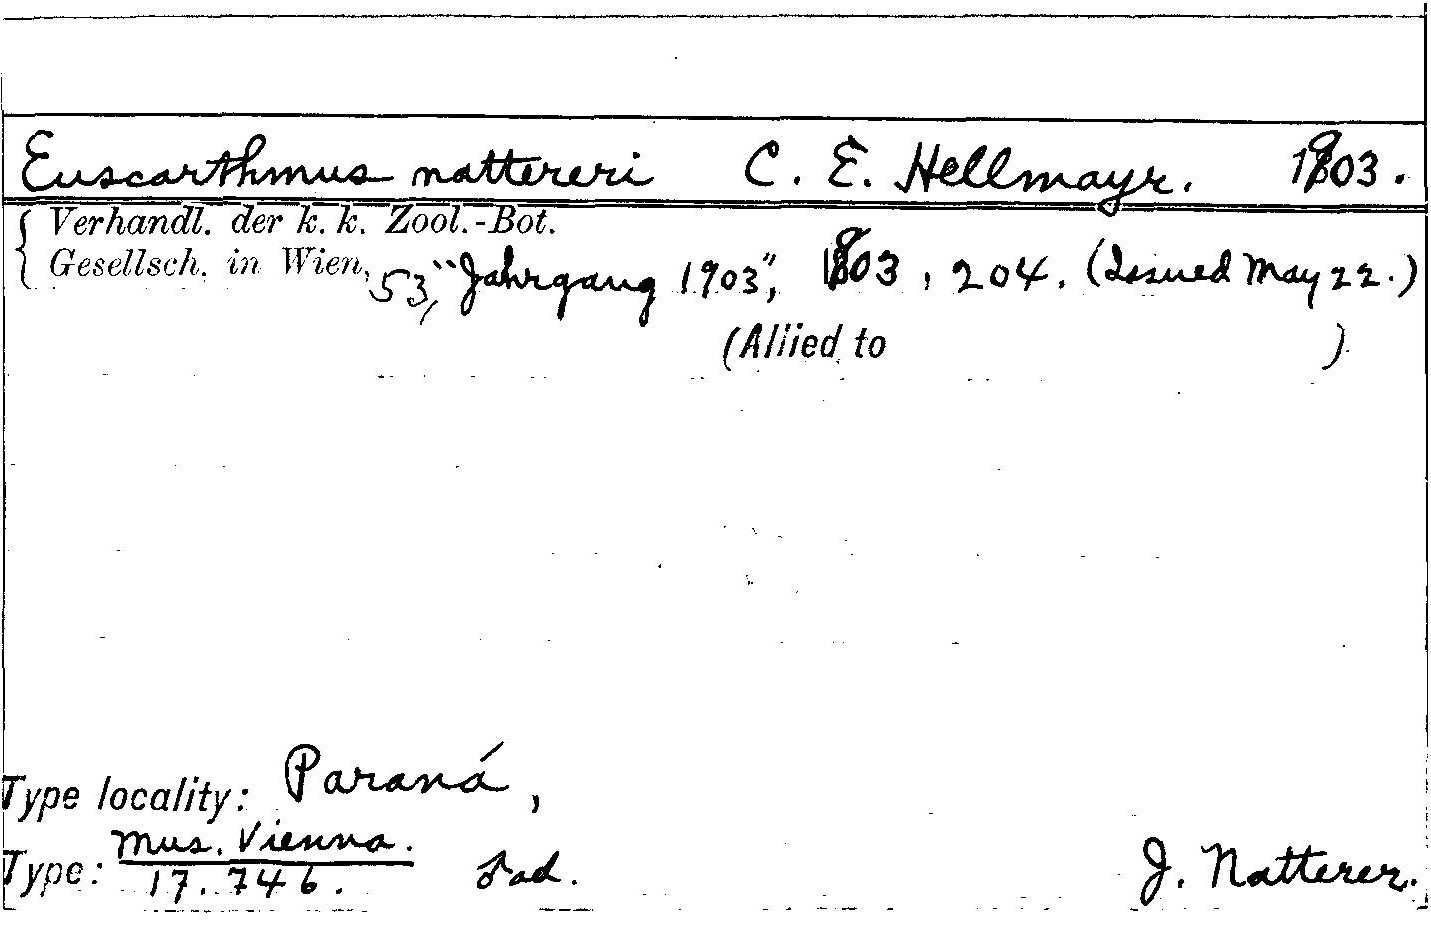 Euscarthmus nattereri C. E. Hellmayr. 1903.
Verhandl. der k. k. Zool.-Bot.
Gesellsch. in Wien, 53, "Jahrgang 1903", 1903, 204. (Issued May 22.)
(Allied to )
Type locality: Paraná,
Type: Mus. Vienna.
17.746. ♂ad. J. Natterer.